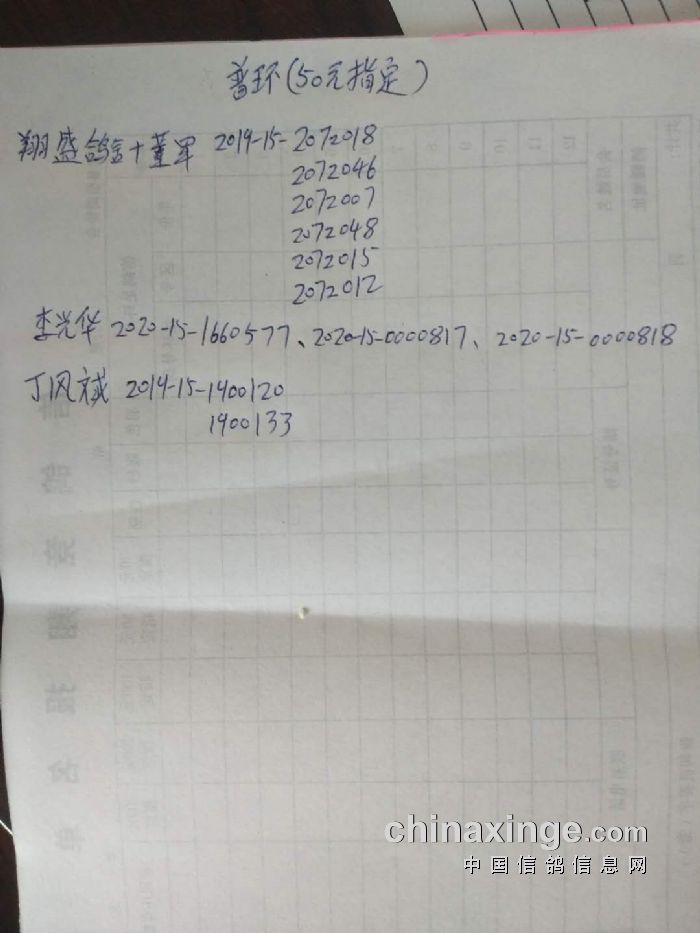 普环(50元指定)
翔盛鸽舍+董军 2019-15-2072018
2072046
2072007
2072048
2072015
2072012
李光华 2020-15-1660577、2020-15-0000817、2020-15-0000818
丁风斌 2014-15-1400120
1400133
chinaxinge.com
中国信鸽信息网